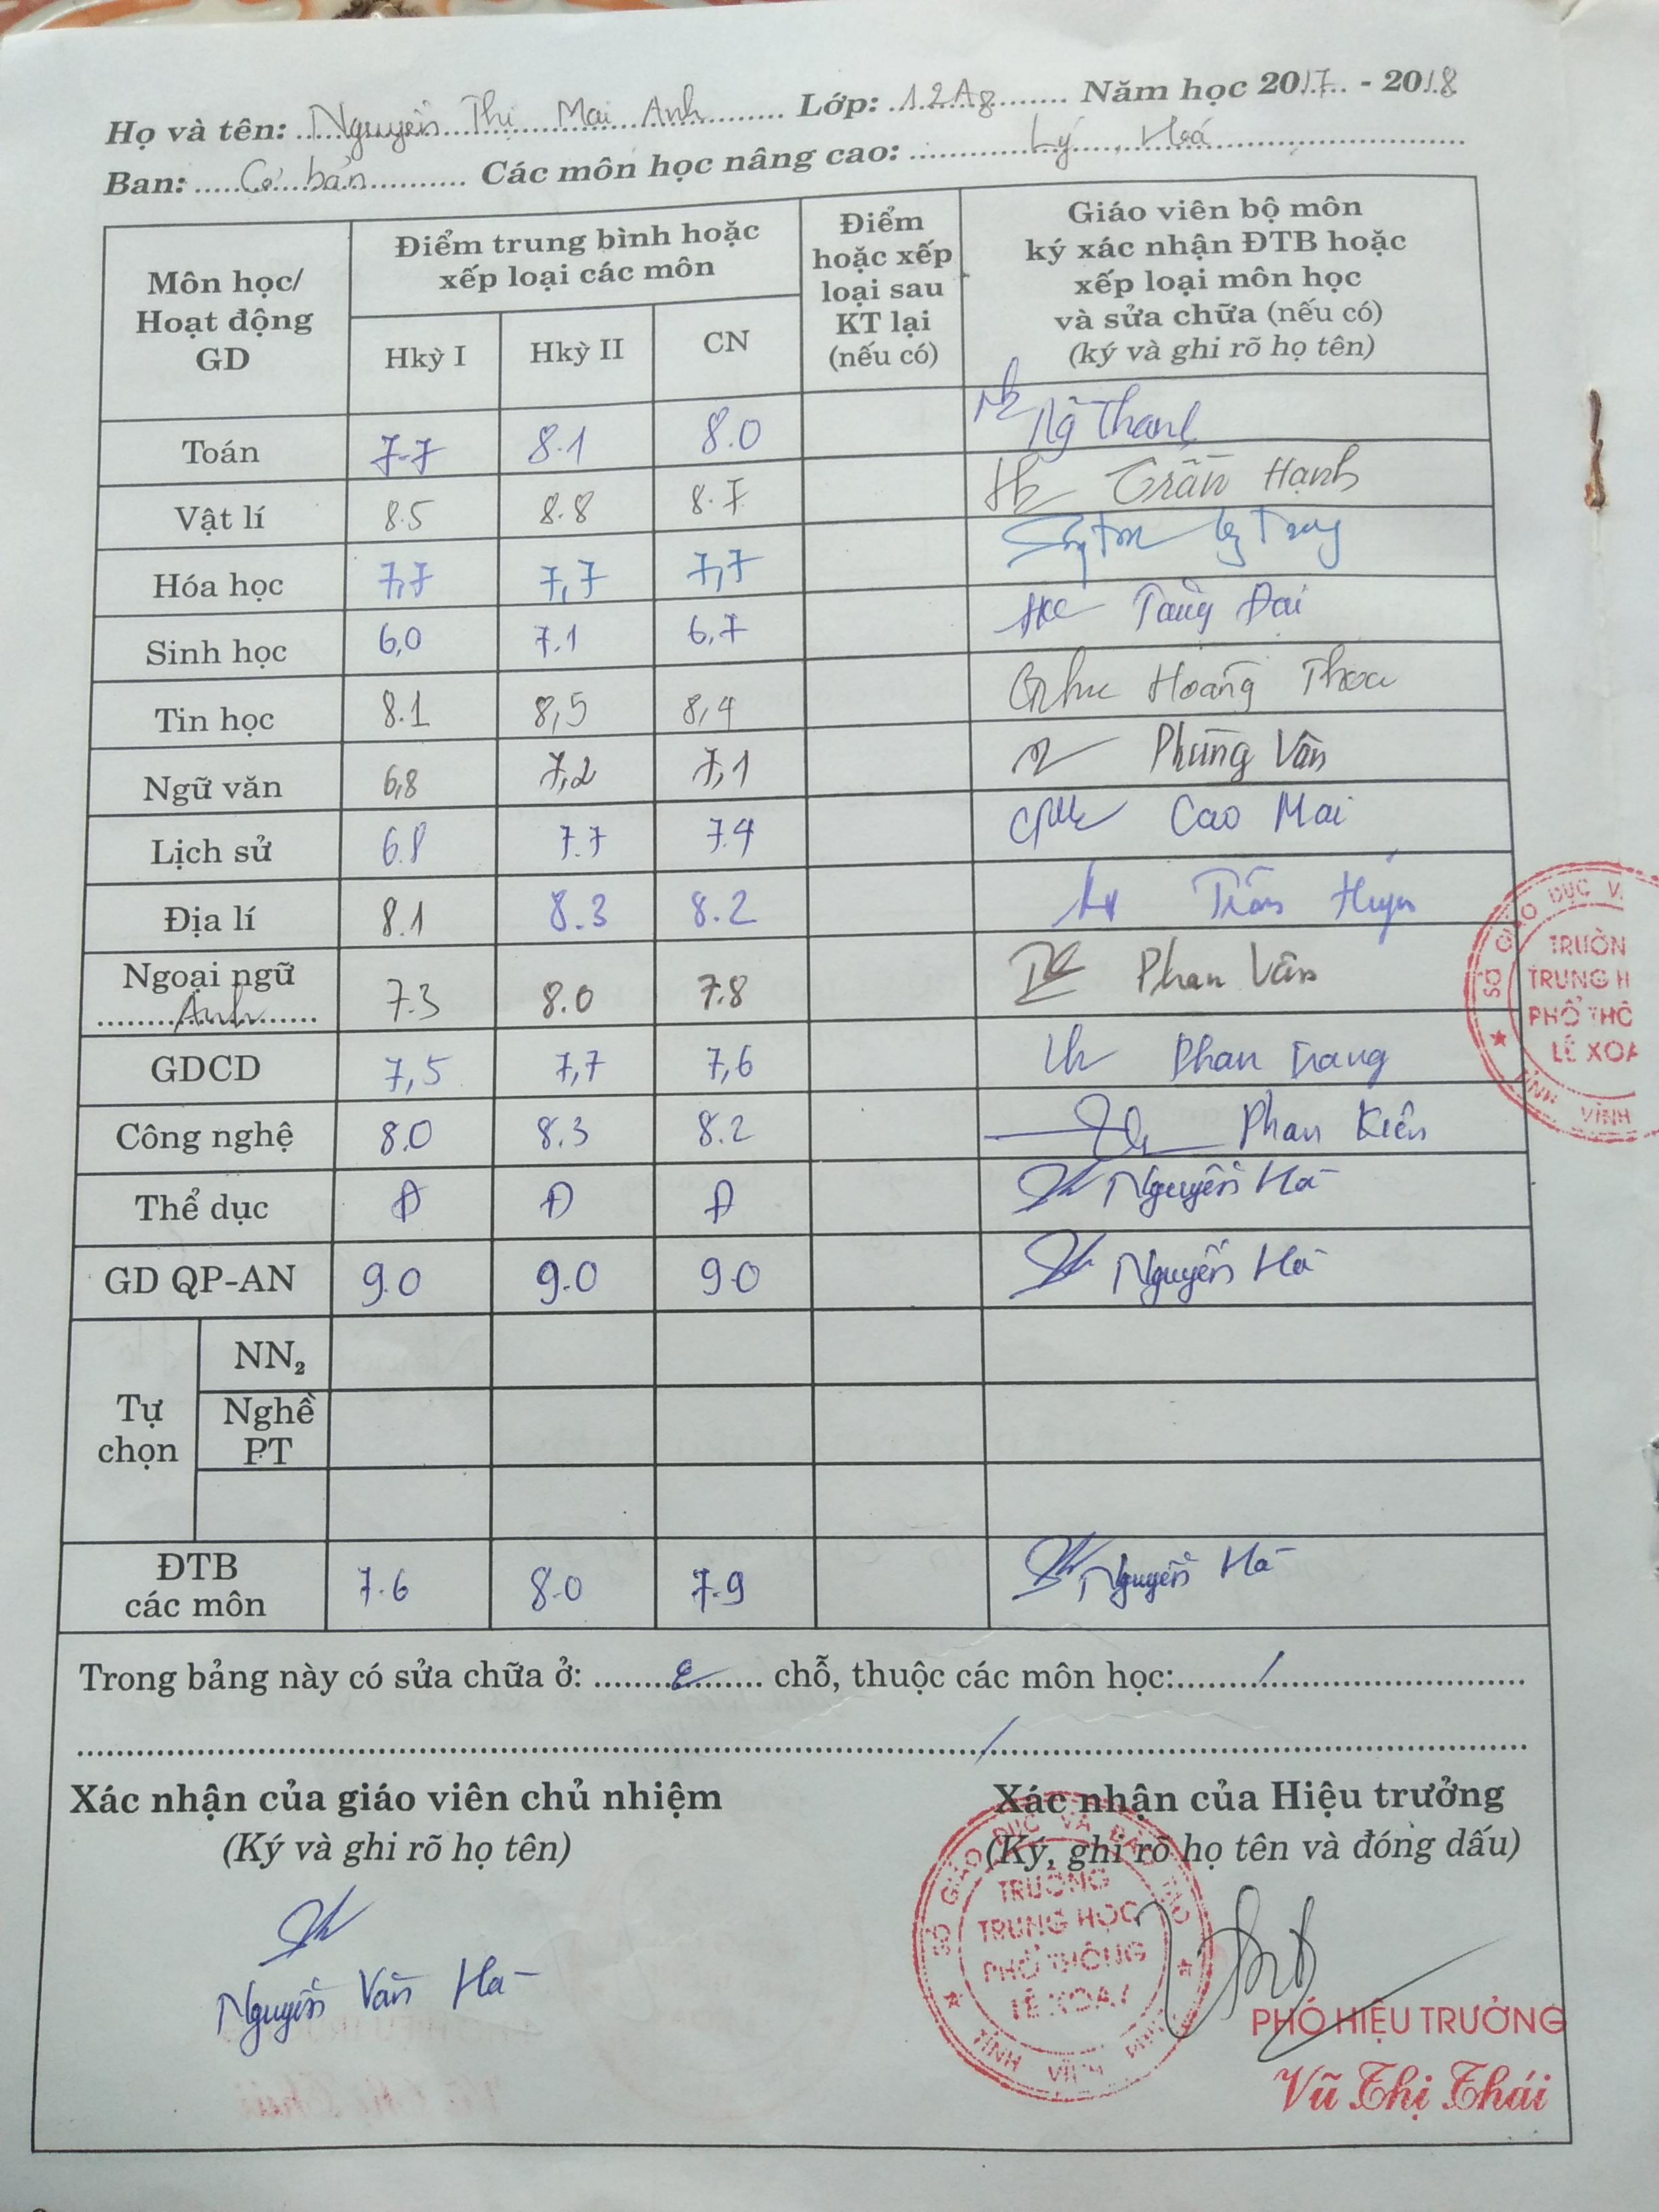 Họ và tên: Nguyễn Thị Mai Anh Lớp: 12A8 Năm học 2017 - 2018
Ban: Cơ bản Các môn học nâng cao: Lý, Hoá
Môn học/ Hoạt động GD
Điểm trung bình hoặc xếp loại các môn
Hkỳ I Hkỳ II CN
Điểm hoặc xếp loại sau KT lại (nếu có)
Giáo viên bộ môn ký xác nhận ĐTB hoặc xếp loại môn học và sửa chữa (nếu có) (ký và ghi rõ họ tên)
Toán 7.7 8.1 8.0 Thanh
Vật lí 8.5 8.8 8.7 Trần Hạnh
Hóa học 7,7 7,7 7,7
Sinh học 6,0 7.1 6,7 Đại
Tin học 8.1 8,5 8,4 Hoàng Thoa
Ngữ văn 6,8 7,2 7,1 Phùng Vân
Lịch sử 6.8 7.7 7.4 Cao Mai
Địa lí 8.1 8.3 8.2 Trần
Ngoại ngữ
Anh 7.3 8.0 7.8 Phan Vân
GDCD 7,5 7,7 7,6 Phan Trang
Công nghệ 8.0 8.3 8.2 Phan Kiên
Thể dục Đ Đ Đ Nguyễn Hà
GD QP-AN 9.0 9.0 9.0 Nguyễn Hà
Tự chọn
NN₂
Nghề PT
ĐTB các môn 7.6 8.0 7.9 Nguyễn Hà
Trong bảng này có sửa chữa ở: chỗ, thuộc các môn học: /
/
Xác nhận của giáo viên chủ nhiệm
(Ký và ghi rõ họ tên)
Nguyễn Văn Hà
Xác nhận của Hiệu trưởng
(Ký, ghi rõ họ tên và đóng dấu)
SỞ GIÁO DỤC VÀ ĐÀO TẠO
TRƯỜNG
TRUNG HỌC
PHỔ THÔNG
LÊ XOAY
TỈNH VĨNH PHÚC
PHÓ HIỆU TRƯỞNG
Vũ Thị Thái
SỞ GIÁO DỤC V
TRƯỜN
TRUNG H
PHỔ THÔ
LÊ XOA
TỈNH VĨNH